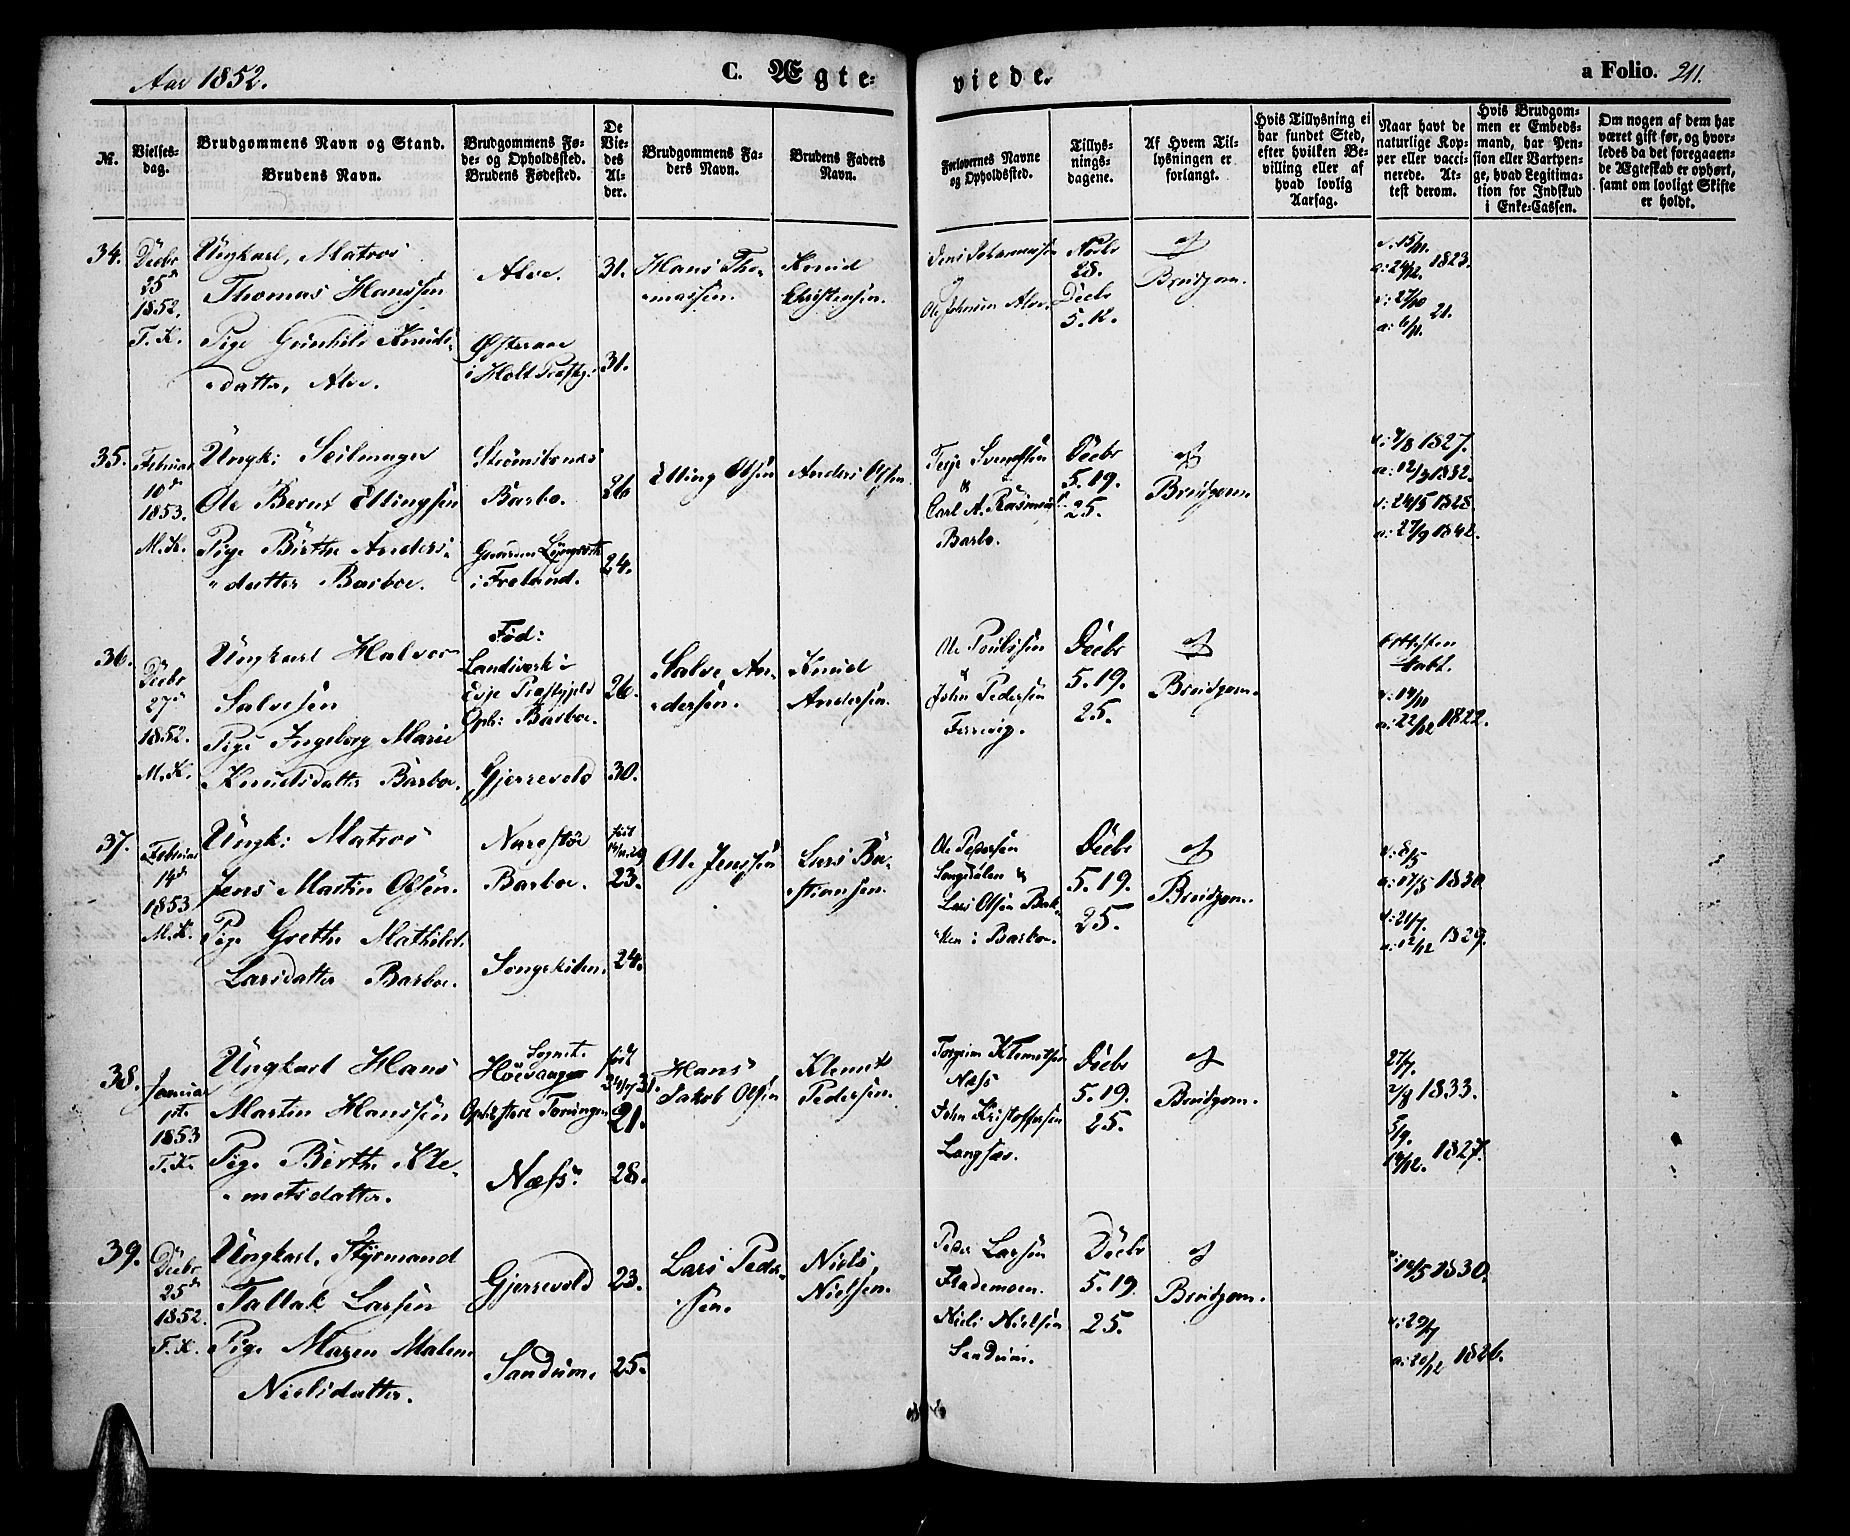 Aar 1852.
C. Ægte=
viede.
a Folio. 211.
№.
Vielses-
dag.
Brudgommens Navn og Stand.
Brudens Navn.
Brudgommens Fø-
de- og Opholdssted.
Brudens Fødested.
De
Vie-
des
Al-
der.
Brudgommens Fa-
ders Navn.
Brudens Faders
Navn.
Forlovernes Navne
og Opholdssted.
Tillys-
nings-
dagene.
Af Hvem Til-
lysningen er
forlangt.
Hvis Tillysning ei
har fundet Sted,
efter hvilken Be-
villing eller af
hvad lovlig
Aarsag.
Naar havt de
naturlige Kop-
per eller vacci-
nerede. At-
test derom.
Hvis Brudgom-
men er Embeds-
mand, har Pen-
sion eller Vartpen-
ge, hvad Legitima-
tion for Indskud
i Enke-Cassen.
Om nogen af dem har
været gift før, og hvor-
ledes da det foregaaen-
de Ægteskab er ophørt,
samt om lovligt Skifte
er holdt.
34.
Decbr
25de
1852.
T. K.
Ungkarl, Matros
Thomas Hanssen
Pige Gunhild Knuds-
datter, Alve.
Alve.
Østeraae
i Holt Præstgj:
31.
31.
Hans Tho-
massen.
Knud
Christensen.
Jens Johannesen
Ole Johnsen Alve.
Novbr
28.
Decbr
5. 12.
af
Brudgom.
v: 15/11.
a: 24/12. 1823.
v: 27/10
a: 6/11. 21.
35.
Februar
10de
1853.
M. K.
Ungk: Seilmager
Ole Bernt Ellingsen
Pige Birthe Anders-
datter Barboe.
Strømsbonæs
Barbo.
Gaarden
i Froland.
26
24.
Elling Olsen
Anders Olsen
Terje Svendsen
&
Carl A. Rasmusen
Barbo.
Decbr
5. 19.
25.
af
Brudgom.
1827.
a: 12/3 1832.
v: 24/5 1828.
a: 27/9 1842.
36.
Decbr
27de
1852.
M. K.
Ungkarl Halvor
Salvesen
Pige Ingeborg Marie
Knudsdatter Barboe.
Fød:
Landsværk i
Evje Præstgjeld
Oph: Barboe.
Gjerrevold
26.
30.
Salve An-
dersen.
Knud
Andersen.
Ole Poulssen
&
John Pedersen
Færevig.
Decbr
5. 19.
25.
af
Brudgom.
Attesten
tabt.
v: 14/11
a: 22/12 1822.
37.
Februar
14de
1853
M. K.
Ungk: Matros
Jens Martin Olsen.
Pige Grethe Mathilde
Larsdatter Barboe.
Narestøe
Barboe.
Songekilen.
23.
24.
Ole Jenssen
Lars Ba-
stiansen.
Ole Pedersen
&
Lars Olsen Bak-
ken i Barboe.
Decbr
5. 19.
25.
af
Brudgom.
v: 8/5
a: 17/5 1830
v: 21/7.
a: 12/12 1829.
38.
Januar
1ste
1853
T. K.
Ungkarl Hans
Martin Hanssen
Pige Birthe Kle-
metsdatter.
Sognet.
Høevaag
Næss.
født
21.
28.
Hans
Jakob Olsen
Klemet
Pedersen.
Torgrim Klemetsen
Næss
John Kristoffersen
Langsæe.
Decbr
5. 19.
25.
af
Brudgom.
27/7.
2/8 1833.
5/9.
14/12. 1827.
39.
Decbr
25de
1852.
T. K.
Ungkarl, Styrmand
Tallak Larsen
Pige Maren Malene
Nielsdatter.
Gjerrevold
Sandum.
23.
25.
Lars Peder-
sen.
Niels
Nielsen.
Peder Larsen
Flademoen.
Niels Nielsen
Sandum.
Decbr
5. 19
25.
af
Brudgom.
v: 14/5 1830.
v: 29/9
a: 20/12 1826.